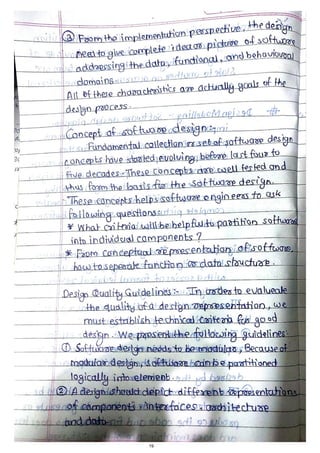 ③ From the implementation perspective, the design
need to give complete idea or picture of software
addressing the data, functional, and behavioural
domains.
All of these characteristics are actually goals of the
design process.
Concept of software design:-
Fundamental collection or set of software design
concepts have started evolving, before last four to
five decades. These concepts are well tested and
thus form the basis for the software design.
These concepts helps software engineers to ask
following questions:
* What criteria will be helpful to partition software
into individual components?
* From conceptual representation of software,
how to seperate function or data structure.
Design Quality Guidelines:- In order to evaluate
the quality of a design representation, we
must establish technical criteria for good
design. We present the following guidelines:
① Software design needs to be modular, Because of
modular design, software can be partitioned
logically into element.
② A design should depict different representations
of components, interfaces, architecture
and data.